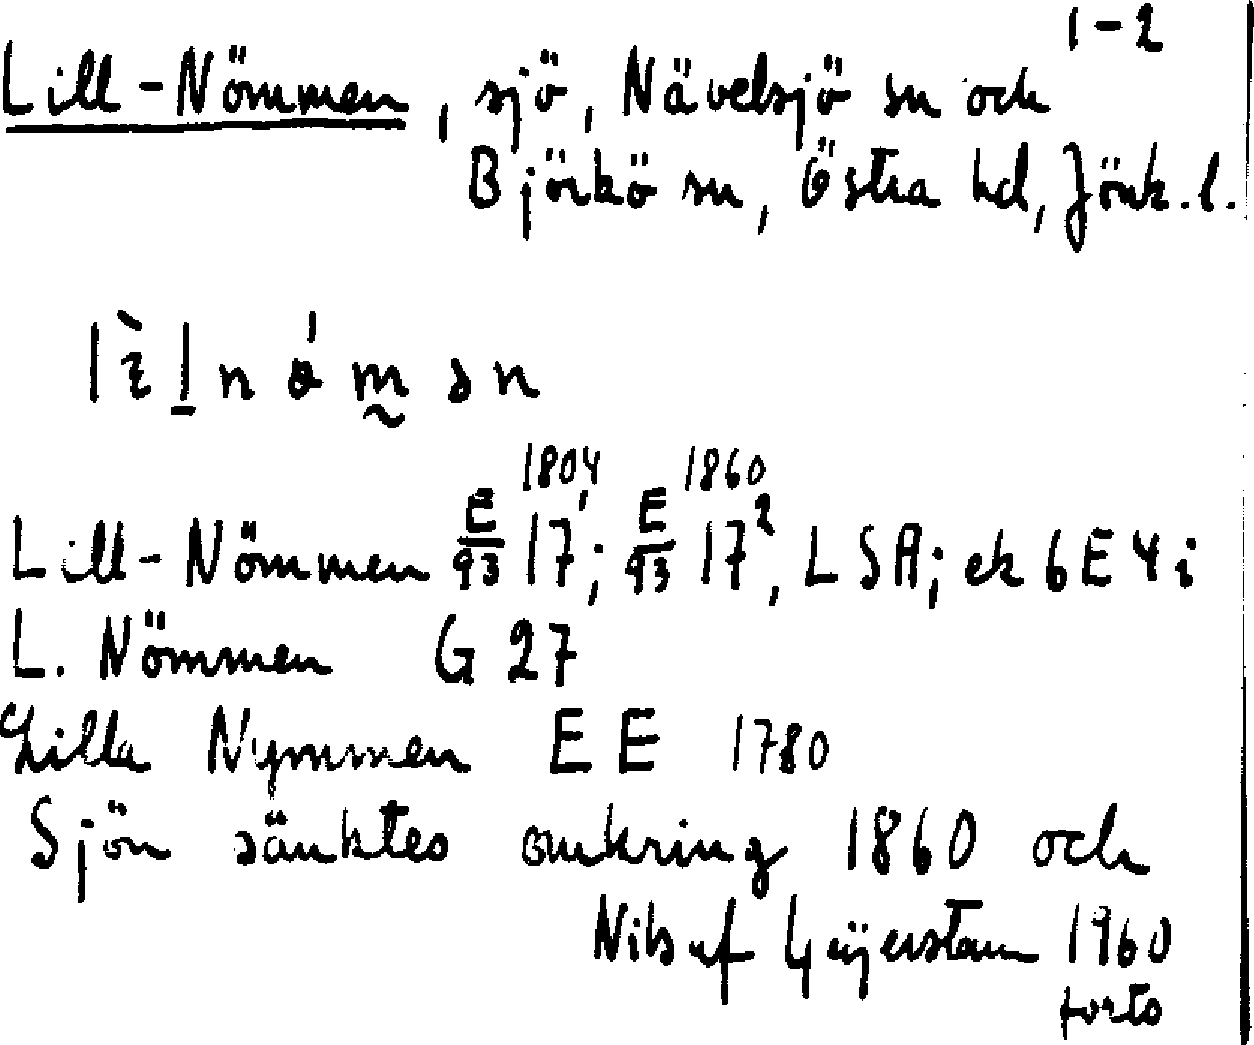 1-2
Lill-Nömmen, sjö, Nävelsjö sn och
Björkö sn, Östra hd, Jönk. l.
lìlnǿmən
1804 1860
Lill-Nömmen E/93 17¹; E/93 17², LSA; ek 6E4i
L. Nömmen G 27
Lilla Nymmen EE 1780
Sjön sänktes omkring 1860 och
Nils af Geijerstam 1960
forts